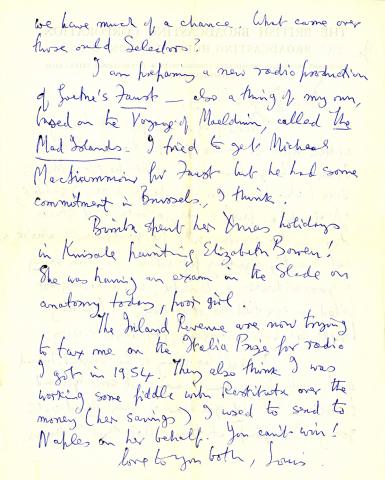 we have much of a chance. What came over
those ould Selectors?
I am preparing a new radio production
of Goethe's Faust — also a thing of my own,
based on the Voyage of Maelduin, called The
Mad Islands. I tried to get Micheal
MacLiammoir for Faust but he had some
commitment in Brussels, I think.
Bimba spent her Xmas holidays
in Kinsale painting Elizabeth Bowen!
She was having an exam in the Slade on
anatomy today, poor girl.
The Inland Revenue are now trying
to tax me on the Italia Prize for radio
I got in 1954. They also think I was
working some fiddle with Restituta over the
money (her savings) I used to send to
Naples on her behalf. You can't win!
love to you both, Louis.